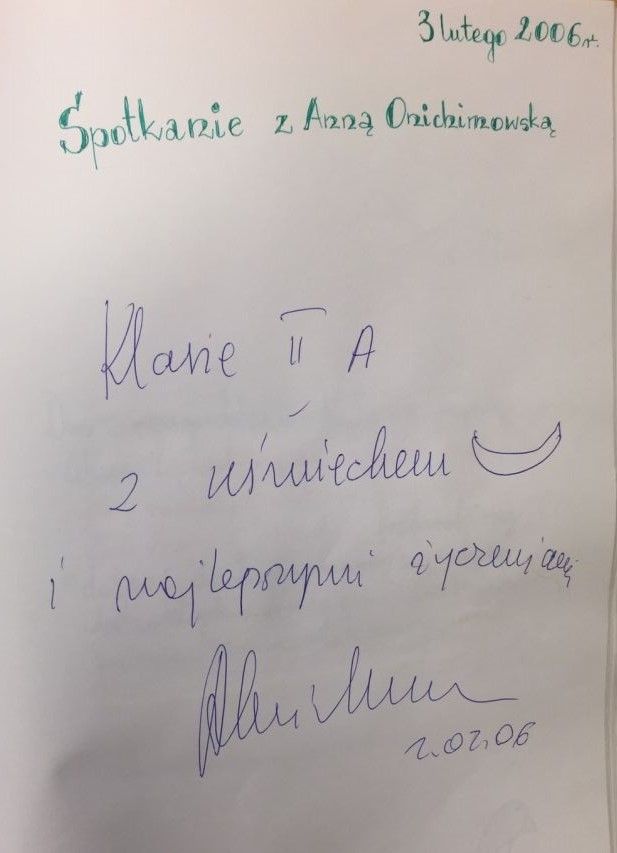 3 lutego 2006r.
Spotkanie z Anną Onichimowską
Klasie II A
z uśmiechem
i najlepszymi życzeniami
2.02.06